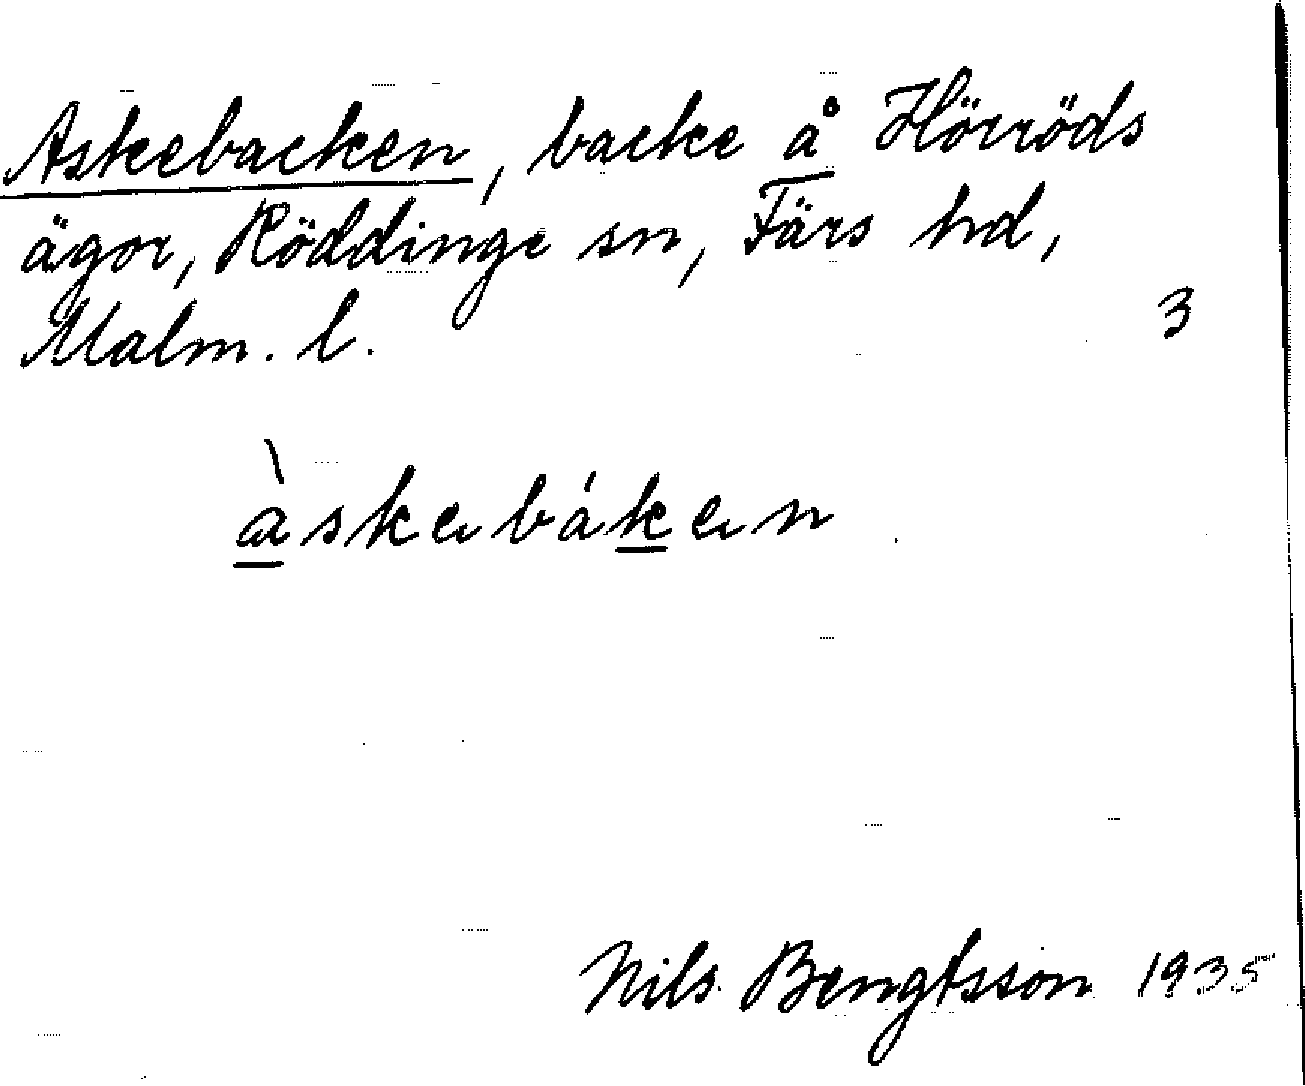 Askebacken, backe å Hörröds
ägor, Röddinge sn, Färs hd,
Malm. l.
3
àskebáken
Nils Bengtsson 1935